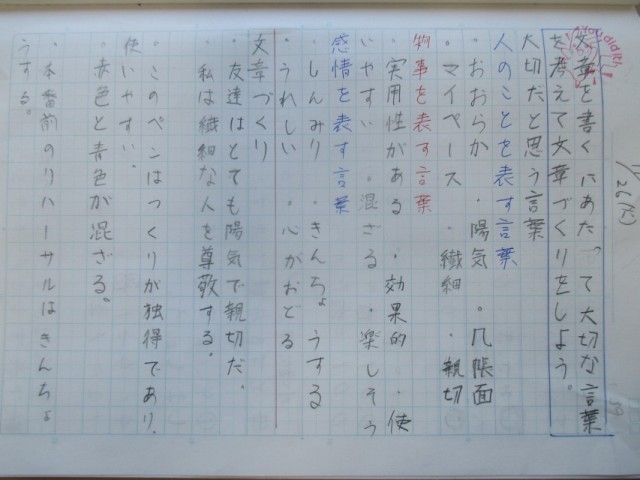 文章を書くにあたって大切な言葉
を考えて文章づくりをしよう。
大切だと思う言葉
人のことを表す言葉
・おおらか ・陽気 ・几帳面
・マイペース ・繊細 ・親切
物事を表す言葉
・実用性がある ・効果的 ・使
いやすい ・混ざる ・楽しそう
感情を表す言葉
・しんみり ・きんちょうする
・うれしい ・心がおどる
文章づくり
・友達はとても陽気で親切だ。
・私は繊細な人を尊敬する。
・このペンはつくりが独得であり、
使いやすい。
・赤色と青色が混ざる。
・本番前のリハーサルはきんちょ
うする。